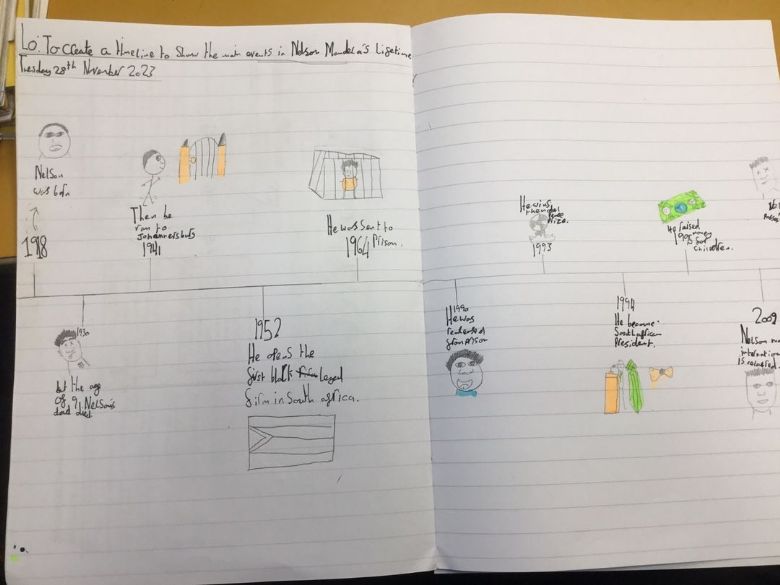 Lo: To create a timeline to show the main events in Nelson Mandela's Lifetime
Tuesday 28th November 2023
Nelson
was born
1918
Then he
ran to
1941
He was sent to
Prison.
1964
1930
At the age
of 9 Nelson's
dad died.
1952
He opens the
first black Legal
firm in South africa.
He wins
Prize.
1993
He raised
money
for
children.
1990
He was
released
from Prison
1994
He became
South African
President.
2009
Nelson
internation
is